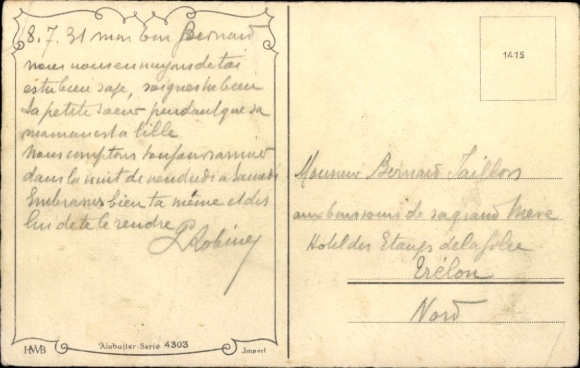 8.7.31 mon bon Bernard
nous nous ennuyons de toi
es tu bien sage, soignes tu bien
ta petite soeur pendant que ta
maman est a lille
nous comptons toujours arriver
dans la nuit de vendredi a Samedi
Embrasses bien ta mémé et dis
lui de te le rendre
Robine
HWB
Alabaster-Serie 4303
Import
1415
Monsieur Bernard Taillois
aux bons soins de sa grand mere
Hotel des Etangs de la folie
Trélon
Nord